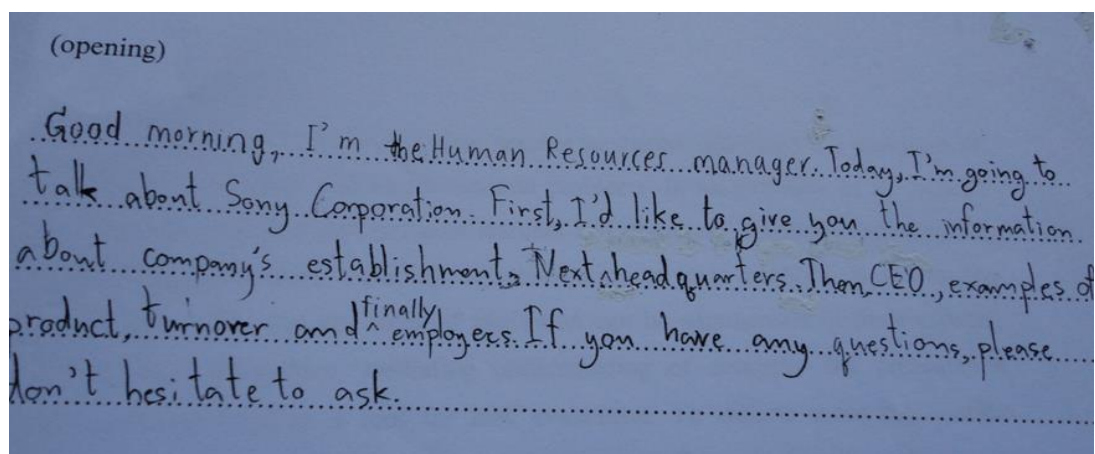 (opening)
Good morning, I'm the Human Resources manager. Today, I'm going to
talk about Sony Corporation. First, I'd like to give you the information
about company's establishment, Next, headquarters. Then, CEO, examples of
product, turnover and finally employees. If you have any questions, please
don't hesitate to ask.